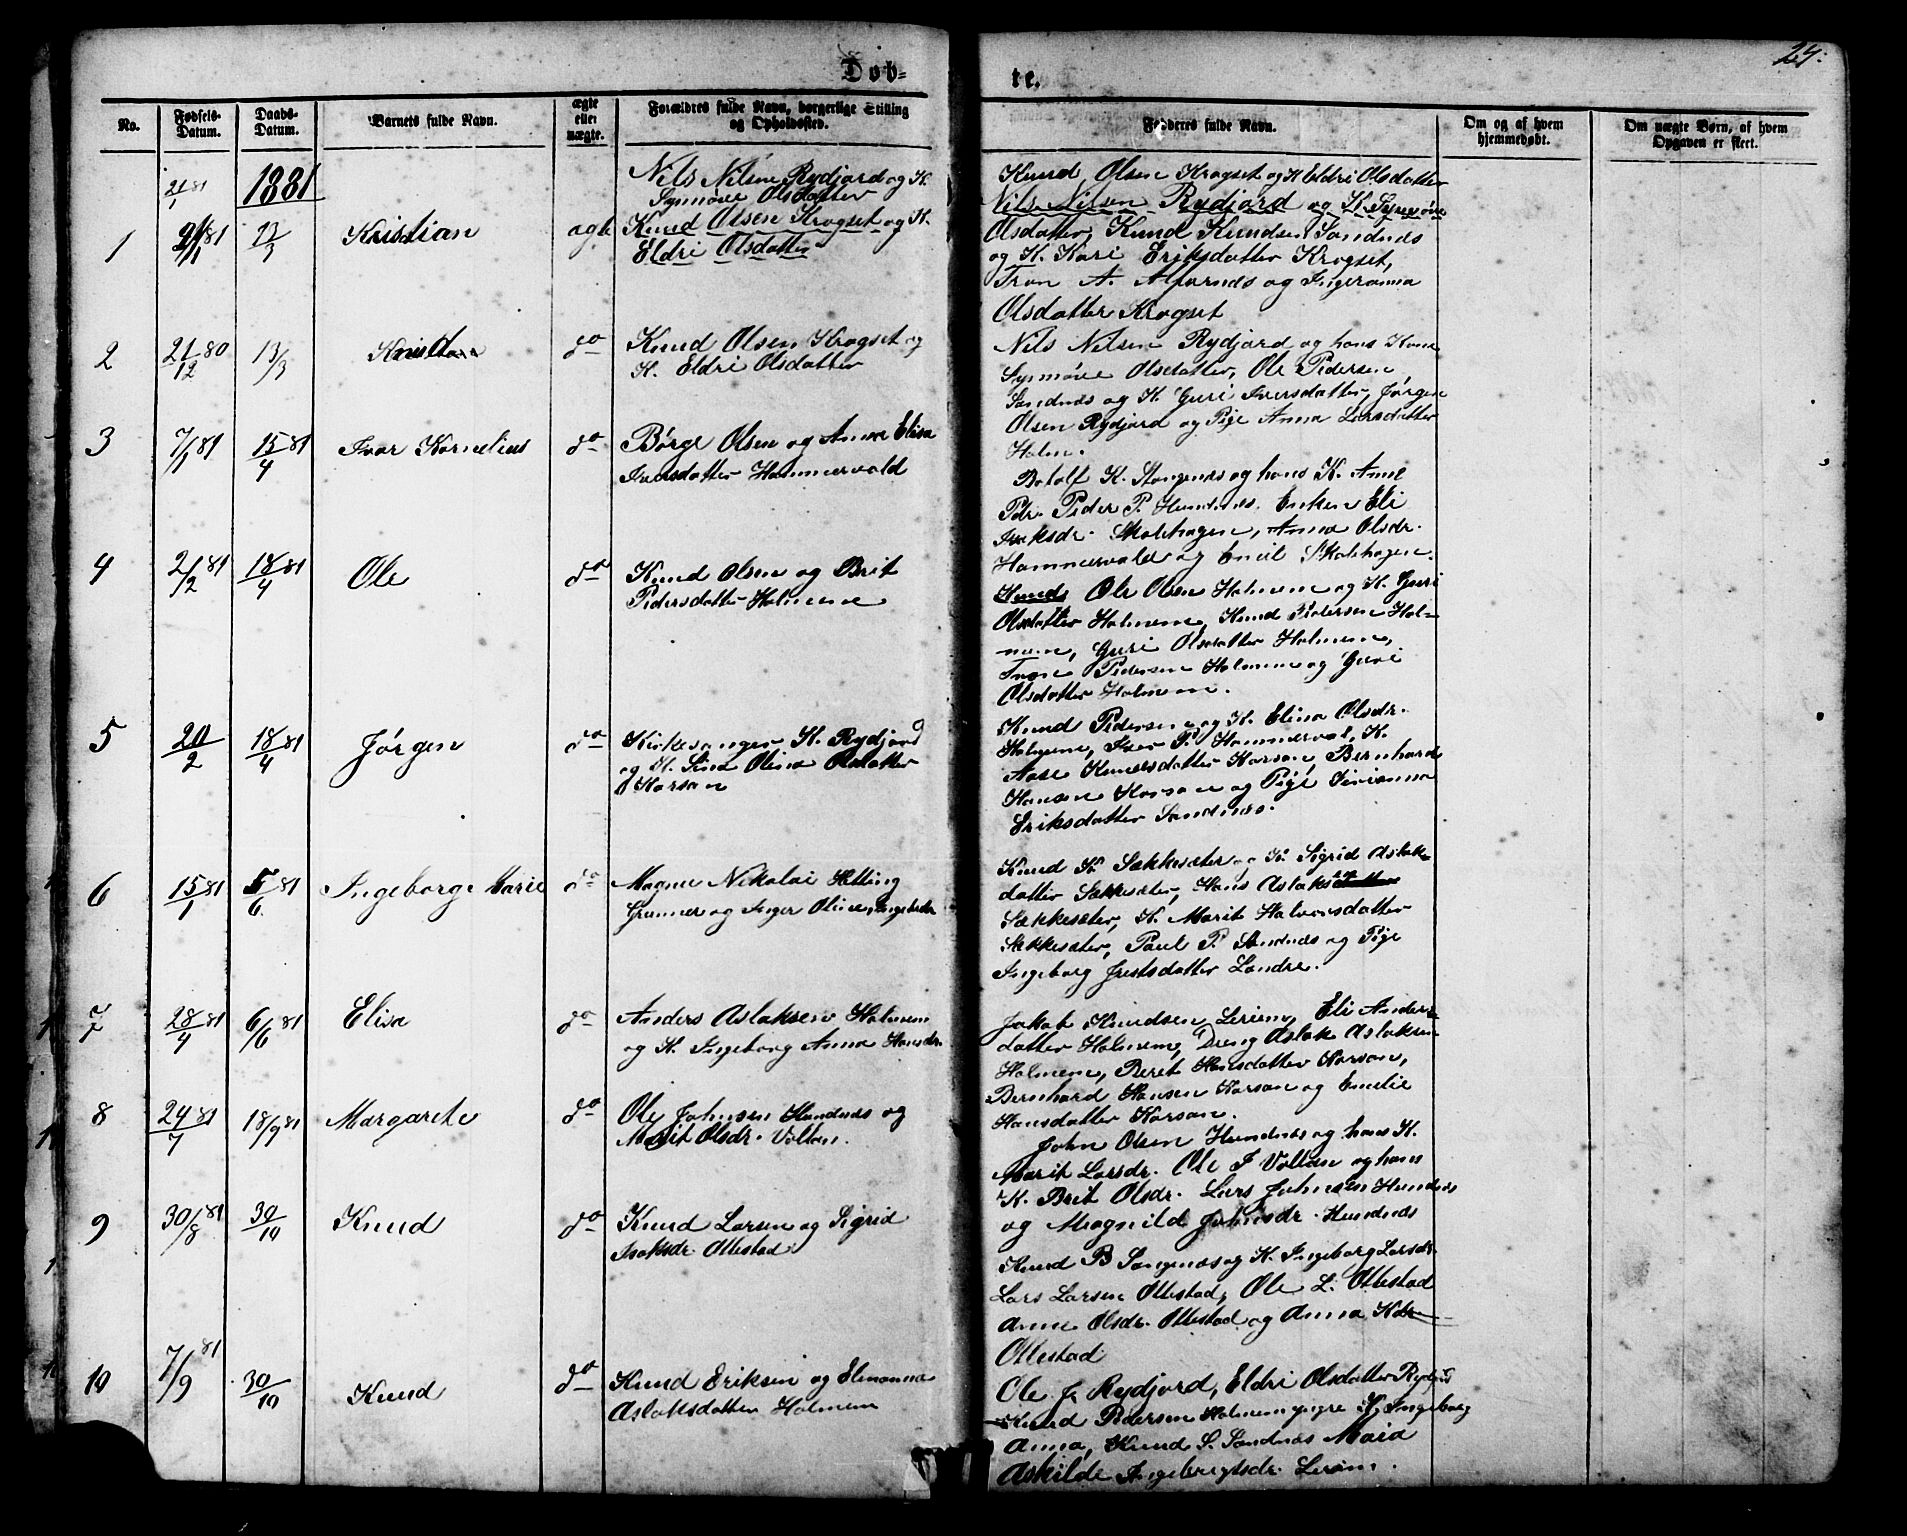 Døb=
te.
24.
No.
Fødsels-
Datum.
Daabs-
Datum.
Barnets fulde Navn.
ægte
eller
uægte.
Forældres fulde Navn, borgerlige Stilling
og Opholdssted.
Fadderes fulde Navn.
Om og af hvem
hjemmedøbt.
Om uægte Børn, af hvem
Opgaven er skeet.
21/1 81
1881
Nils Nilsen Rydjord og K.
Synnøve Olsdatter
1
Kristian
Knud Olsen Krogset og K.
Eldri Olsdatter
Knud Olsen Krogset og K Eldri Olsdatter
Nils Nilsen Rydjord og K. Synnøve
Olsdatter, Knud Knudsen Sandnes
og K. Kari Eriksdatter Krogset,
Tron A. og Ingeranna
Olsdatter Krogset
2
21/12 80
13/3
do
Knud Olsen Krogset og
K. Eldri Olsdatter
Nils Nilsen Rydjord og hans Kone
Synnøve Olsdatter, Ole Pedersen
Sandnes og K. Guri Iversdatter, Jørgen
Olsen Rydjord og Pige Anna Larsdatter
Holm.
3
7/1 81
15/4 81
Ivar Kornelius
do
Børge Olsen og Anna Elisa
Iversdatter Hammervold
Botolf K. Stangenes og hans K. Anne
Pdr. Peder P. Hundnes. Enken Eli
Skolehagen, Anna Olsdr.
Hammervold og Emil Skolehagen.
4
2/2 81
18/4 81
Ole
do
Knud Olsen og Brit
Pedersdatter Holmene
Knud Ole Olsen Holmem og K. Guri
Olsdatter Holmene, Knud Pedersen Hol-
mem, Guri Olsdatter Holmem,
Tron Pedersen Holmem og Guri
Olsdatter Holmem.
5
20/2
18/4 81
Jørgen
do
Kirkesanger K. Rydjord
og K. Sina Olina Olsdatter
Korsan
Knud Pedersen og K. Elina Olsdr.
Holmene, Iver P. Hammervol, K.
Aase Knudsdatter Korsan, Bernhard
Hansen Korsan og Pige Sivianna
Eriksdatter Sandnes.
6
15/1 81
5/6 81
Ingeborge Marie
do
Magnus Nikolai Hetting
og Inger Oline
Knud K. Sekkesæter og K. Sigrid Aslak-
datter Sekkesæter, Hans Aslaksen
Sækkesæter, K. Marit Halvorsdatter
Sækkesæter, Paul P. Sandnes og Pige
Ingeborg Landre.
7
28/4 81
6/6 81
Elisa
do
Anders Aslaksen Holmem
og K. Ingeborg Anna Hansdr.
Jakob Knudsen Lereim, Eli Anders-
datter Holmem, Dreng Aslak Aslaksen
Holmem, Beret Hansdatter Korsan,
Bernhard Hansen Korsan og Emelie
Hansdatter Korsan.
8
24/7 81
18/9 81
Margarete
do
Ole Johnsen Hundnes og
Marit Olsdr. Voltan.
John Olsen Hundnes og hans K.
Marit Larsdr. Ole J Voldan og hans
K. Brit Olsdr. Lars Johnsen Hundnes
og Magnild Johnsdr. Hundnes
9
30/8 81
30/10
Knud
do
Knud Larsen og Sigrid
Isaksdr. Ottestad
Knud B og K. Ingeborg Larsdr.
Lars Larsen Ottestad, Ole L. Ottestad
Anne Olsdr. Ottestad og Anna Kdr
Ottestad
10
7/9 81
30/10
Knud
do
Knud Eriksen og Elenanna
Aslaksdatter Holmem
Ole J. Rydjord, Eldri Olsdatter Rydjord
Knud Pedersen Holmem yngre K. Ingeborg
Anna, Knud S. Sandnes
Askilde Ingebrigtsdr. Lereim.